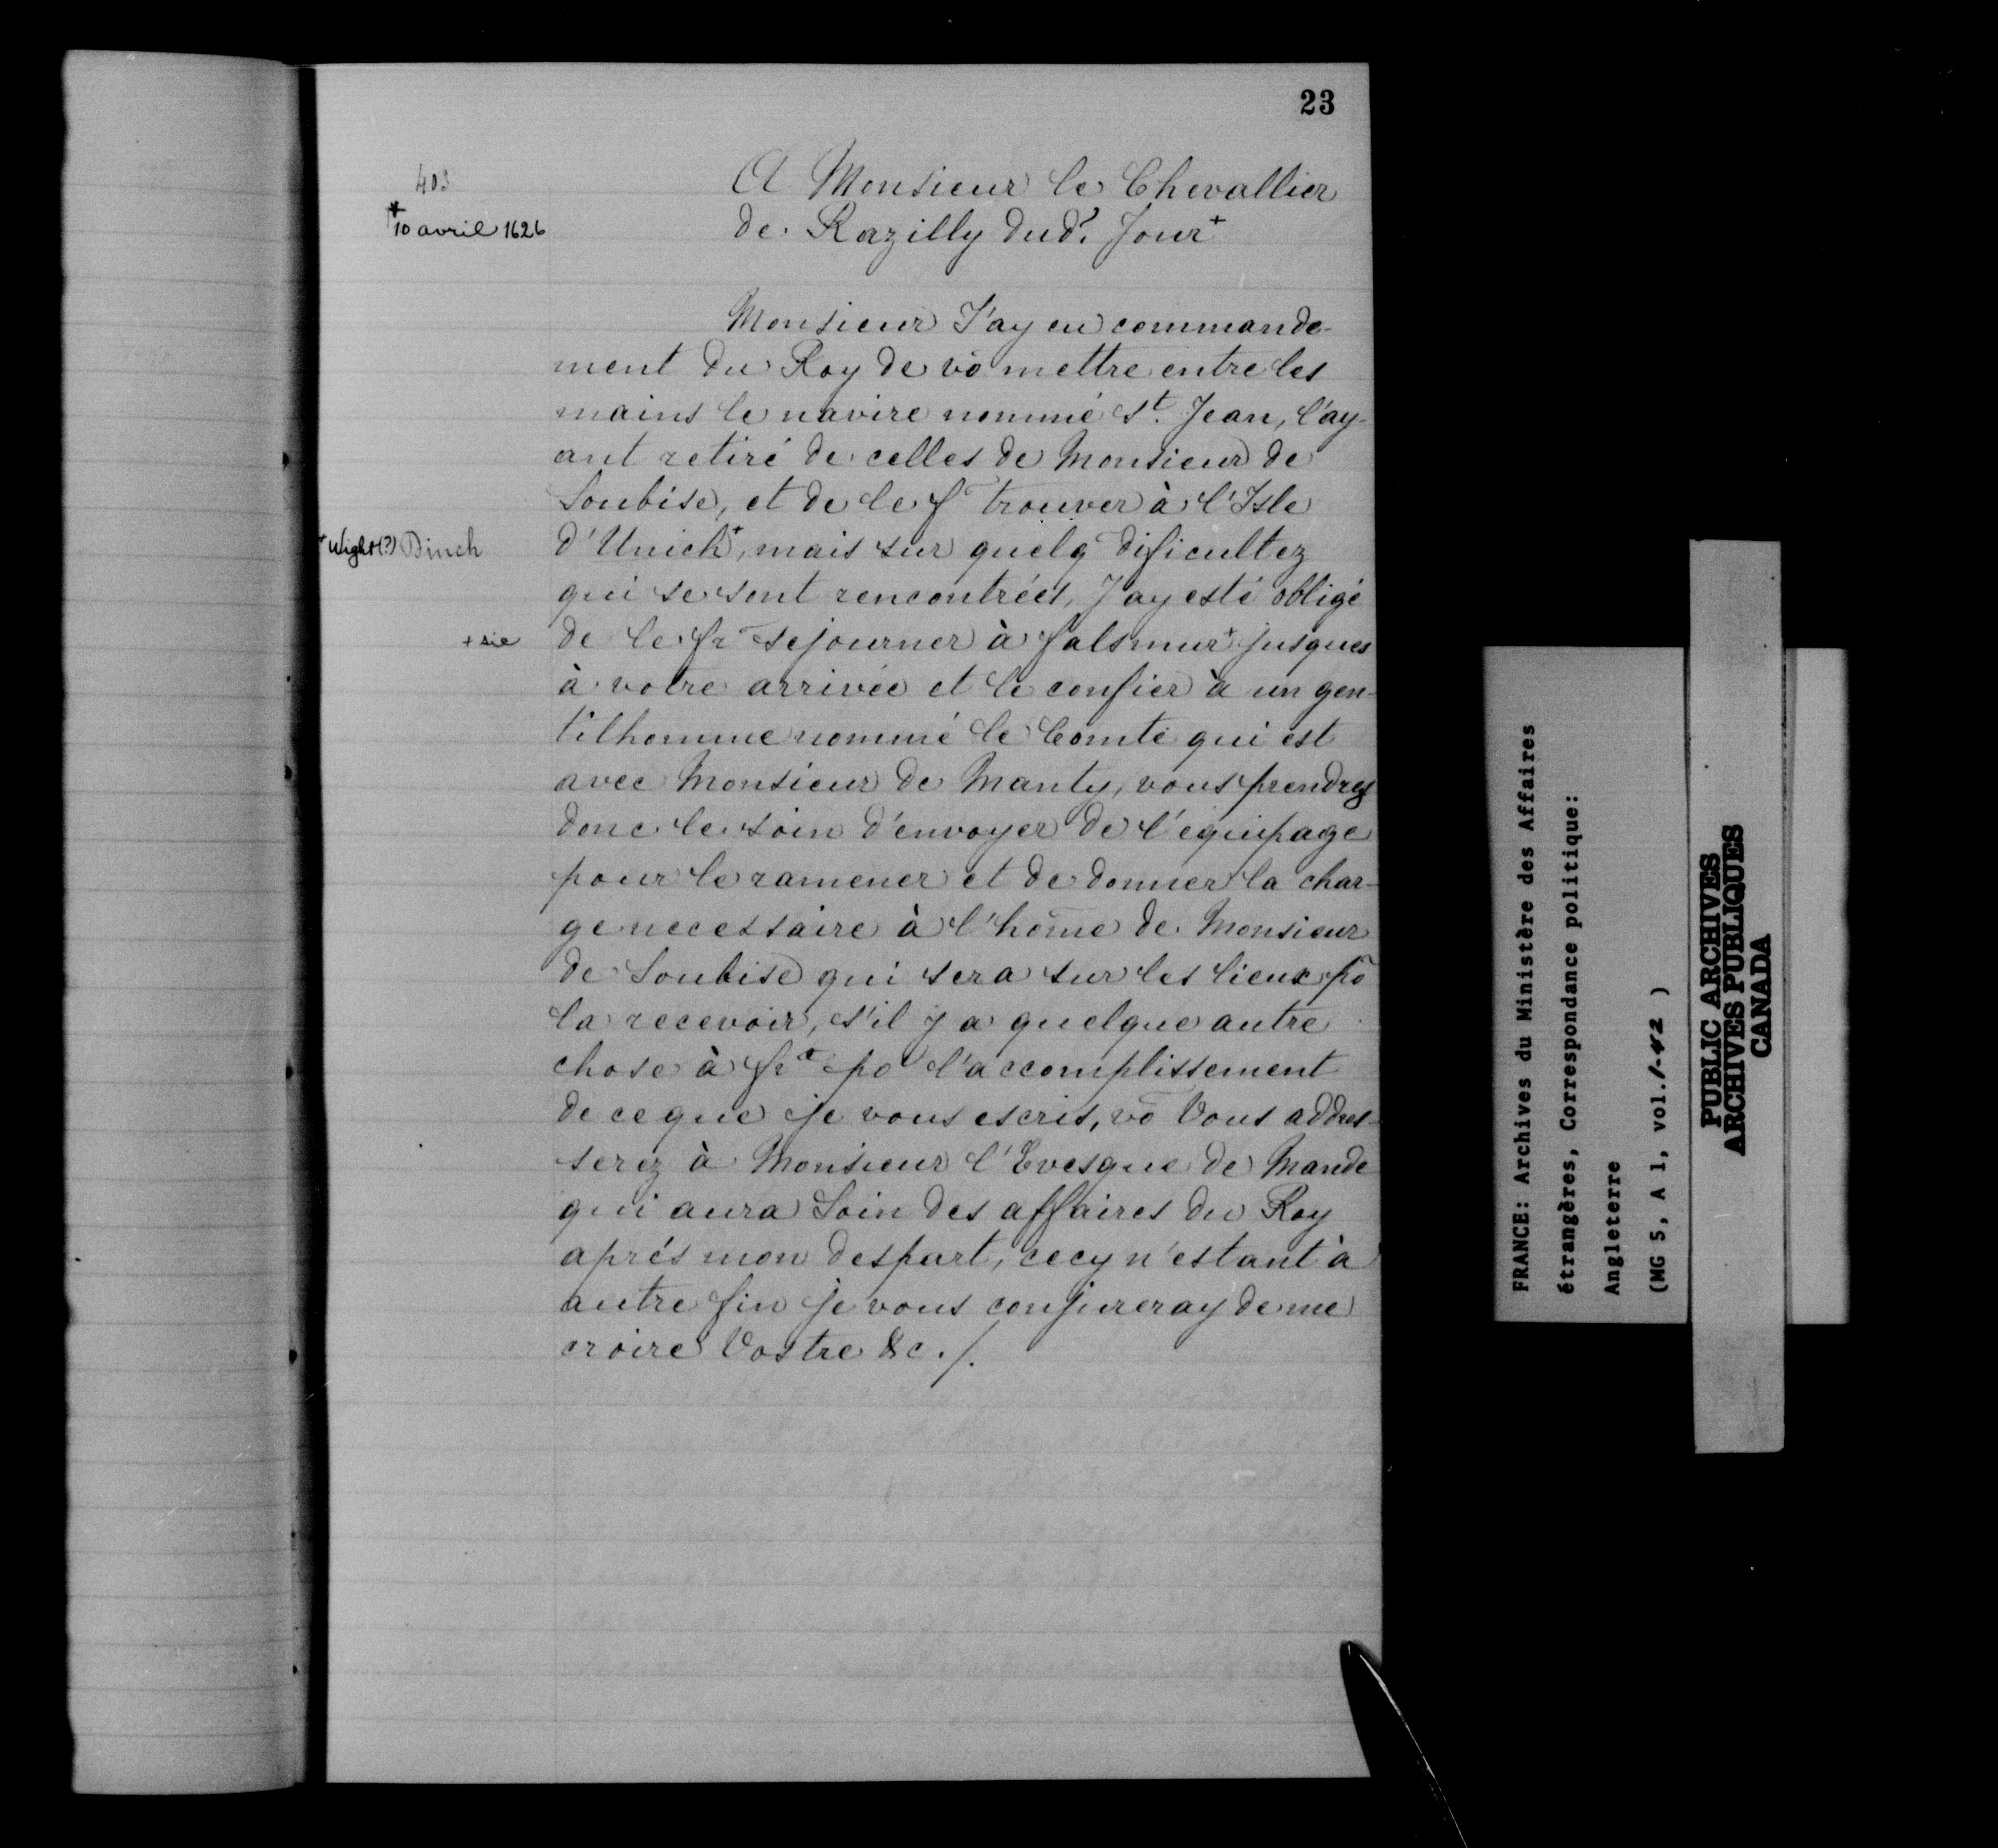 23
403
A Monsieur le Chevallier
+ 10 avril 1626
de Razilly dud.t Jour+
Monsieur J'ay eu commande-
ment du Roy de vō mettre entre les
mains le navire nommé St. Jean, l'ay-
ant retiré de celles de Monsieur de
Soubise, et de le fᵉ trouver à l'Isle
+ Wight(?) Dinch
d'Unich+, mais sur quelq̄ dificultez
qui se sont rencontrées, J'ay esté obligé
+ sic
de le frᵉ sejourner à falsmur+ jusques
à votre arrivée et le confier à un gen-
tilhomme nommé le Comte qui est
avec Monsieur de Manty, vous prendrez
donc le soin d'envoyer de l'equipage
pour le ramener et de donner la char-
ge necessaire à l'hom̄e de Monsieur
de Soubise qui sera sur les lieux pō
la recevoir, s'il y a quelque autre
chose à frᵉ pō l'accomplissement
de ce que je vous escris, vō Vous addres-
serez à Monsieur l'Evesque de Mande
qui aura Soin des affaires du Roy
aprés mon despart, cecy n'estant à
autre fin je vous conjureray de me
croire Vostre &c./.
FRANCE: Archives du Ministère des Affaires
étrangères, Correspondance politique:
Angleterre
(MG 5, A 1, vol. 1-42 )
PUBLIC ARCHIVES
ARCHIVES PUBLIQUES
CANADA